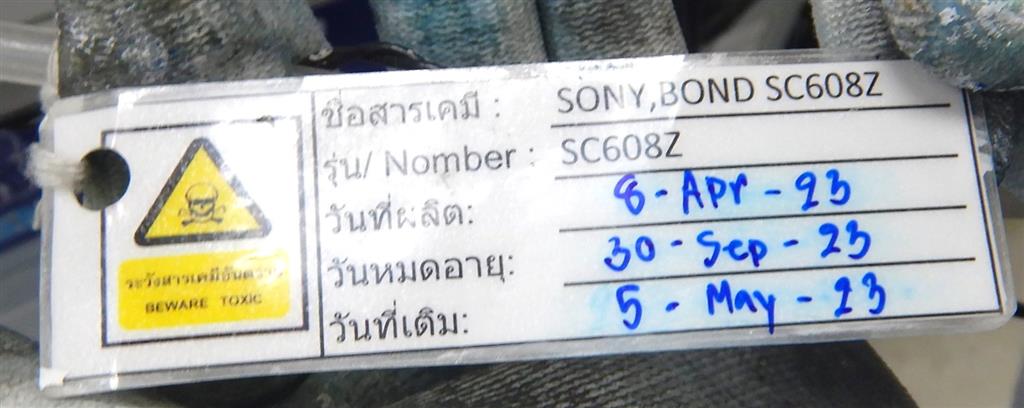 ระวังสารเคมีอันตราย
BEWARE TOXIC
ชื่อสารเคมี : SONY,BOND SC608Z
รุ่น/ Nomber : SC608Z
วันที่ผลิต: 8-Apr-23
วันหมดอายุ: 30-Sep-23
วันที่เติม: 5-May-23